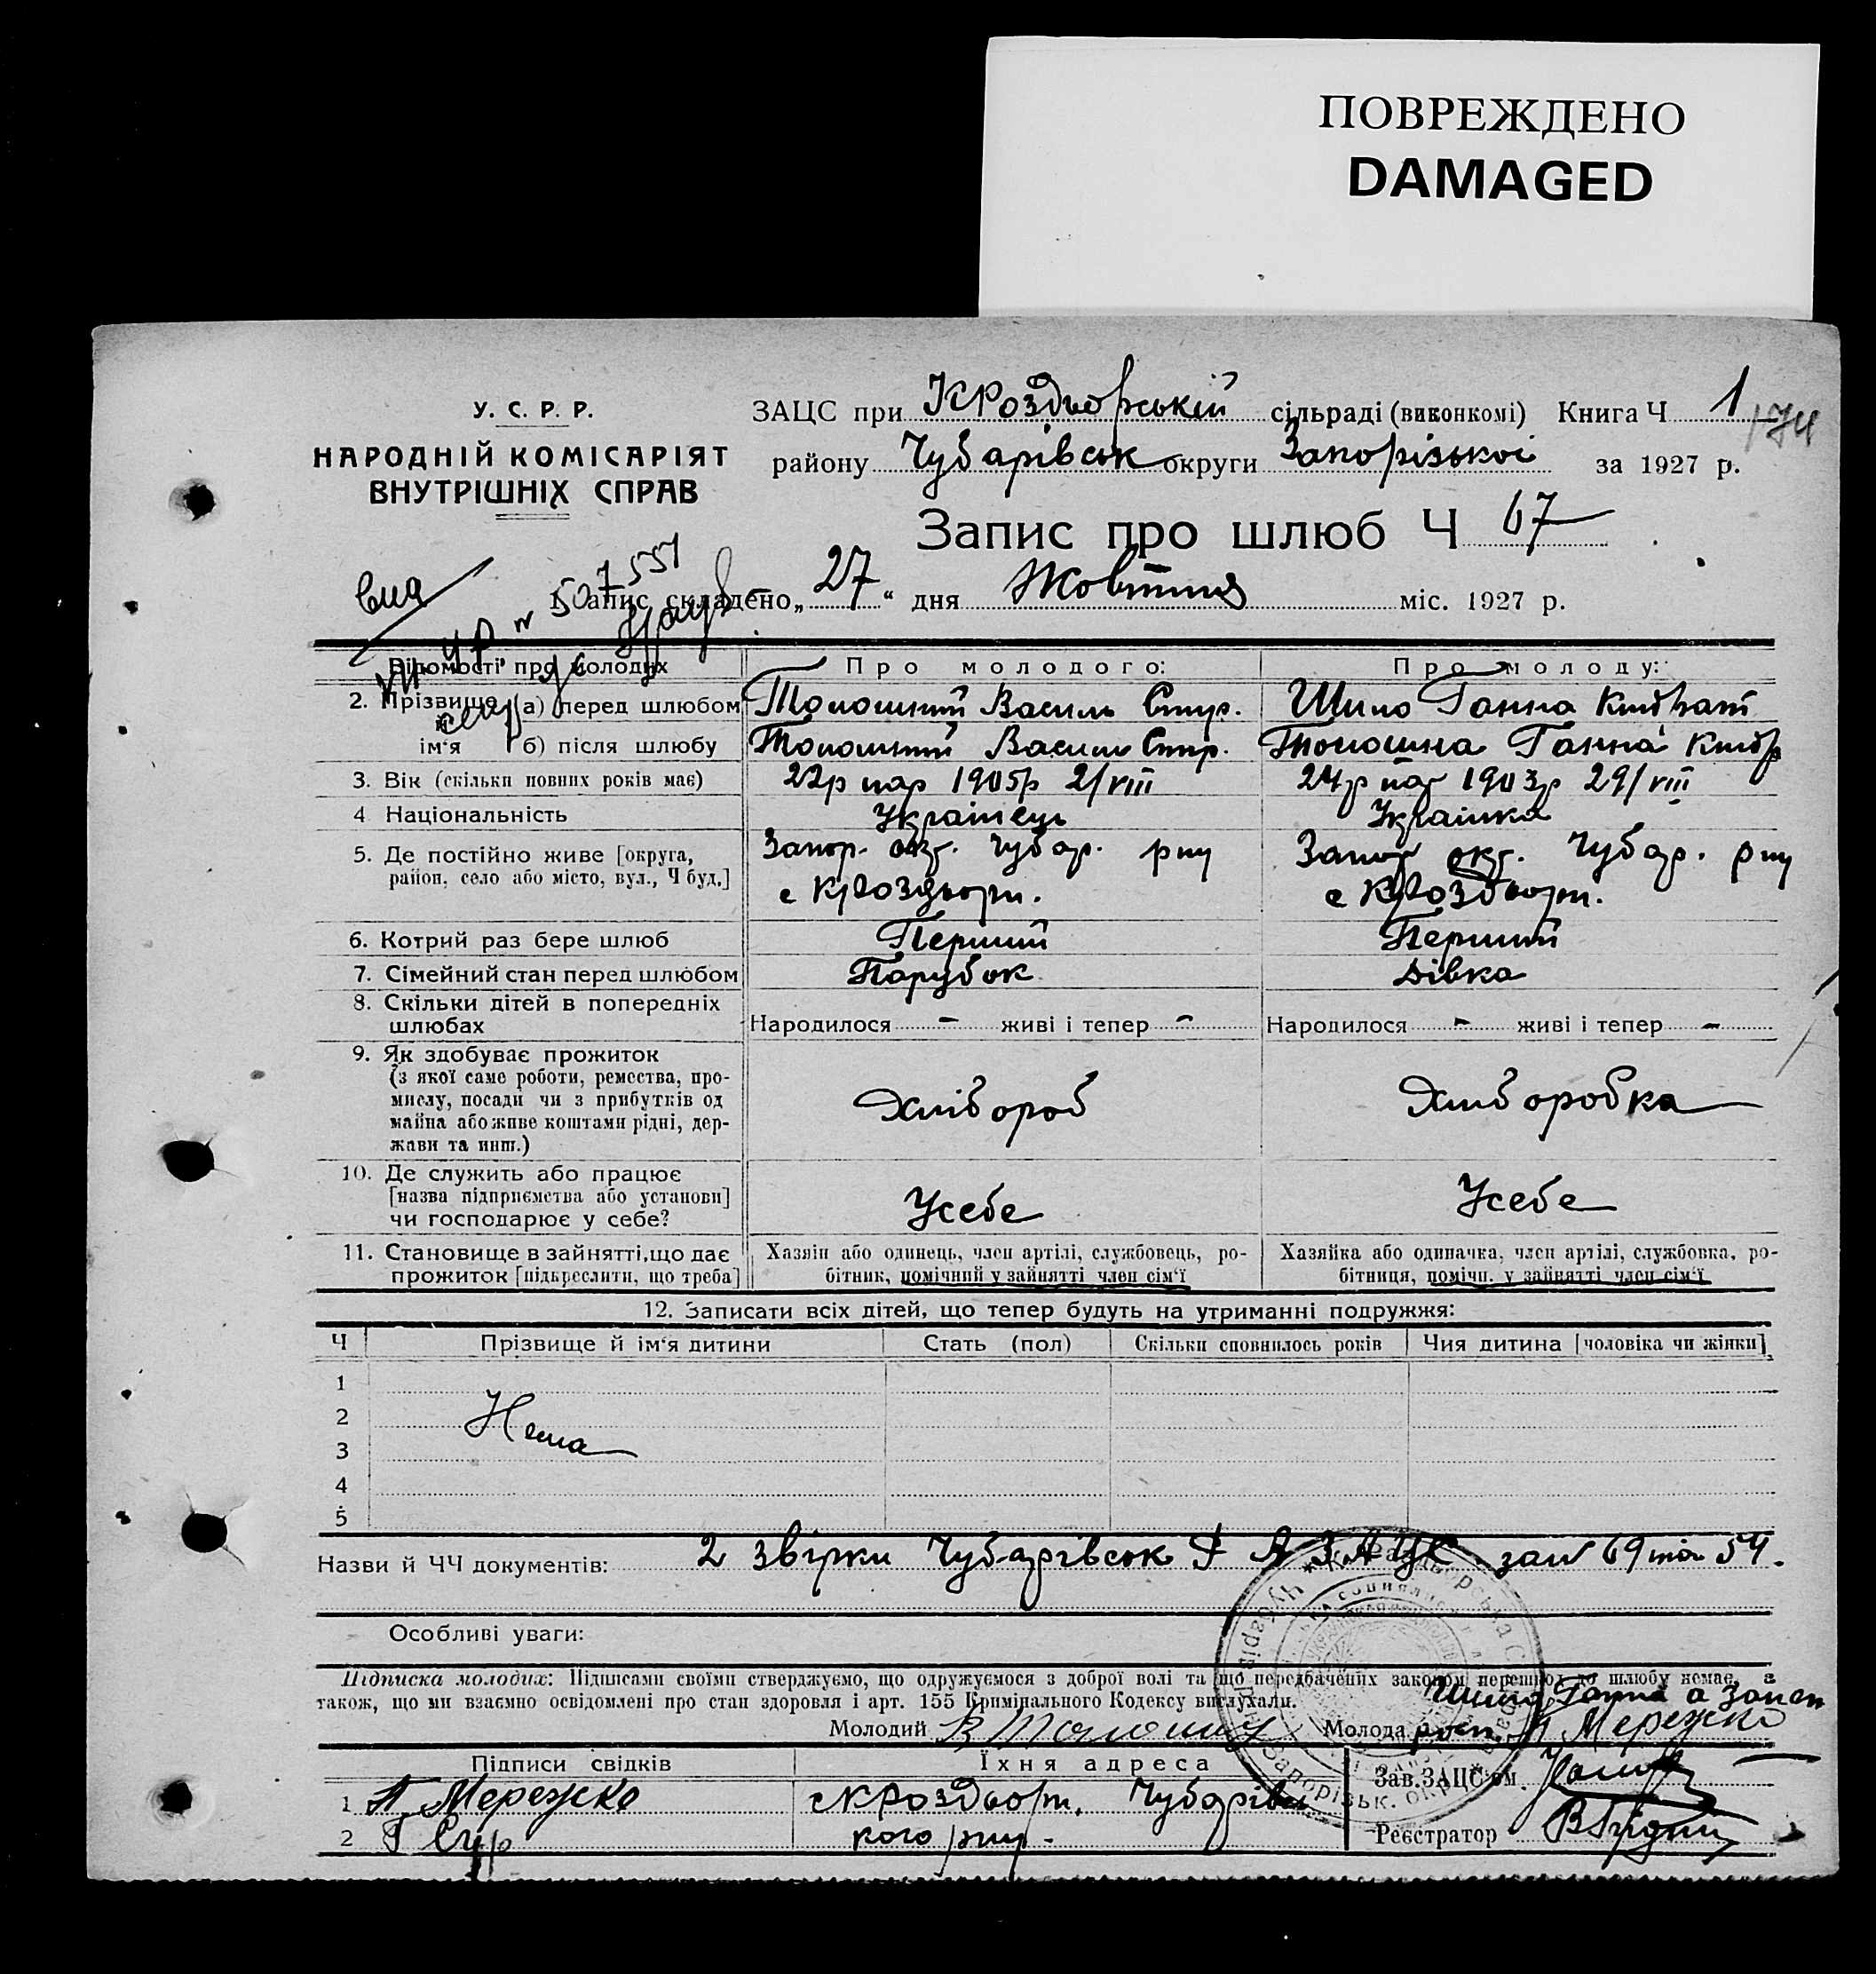 ПОВРЕЖДЕНО
DAMAGED
У. С. Р. Р.
НАРОДНІЙ КОМІСАРІЯТ
ВНУТРІШНІХ СПРАВ
ЗАЦС при КРоздворській сільраді (виконкомі) Книга Ч 1
174
району Чубарівськ округи Запорізької за 1927 р.
Запис про шлюб Ч 67
507551
1. Запис складено „27“ дня Жовтня міс. 1927 р.
Відомості про молодих
Про молодого:
Про молоду:
2. Прізвище й ім‘я
а) перед шлюбом
Василь Спир.
Шило Ганна
б) після шлюбу
Василь Спир.
Ганна
3. Вік (скільки повних років має)
22р нар 1905р 2/VIII
24р нар 1903р 29/VIII
4 Національність
Українець
Українка
5. Де постійно живе [округа, район, село або місто, вул., Ч буд.]
Запор. окр. Чубар. р-ну
с КРоздори.
Запор окр. Чубар. р-ну
с КРоздори.
6. Котрий раз бере шлюб
Перший
Перший
7. Сімейний стан перед шлюбом
Парубок
Дівка
8. Скільки дітей в попередніх шлюбах
Народилося - живі і тепер -
Народилося - живі і тепер -
9. Як здобуває прожиток
(з якої саме роботи, ремества, про-
мислу, посади чи з прибутків од
майна або живе коштами рідні, дер-
жави та инш.)
Хлібороб
Хліборобка
10. Де служить або працює
[назва підприємства або установи]
чи господарює у себе?
Усебе
Усебе
11. Становище в зайнятті, що дає
прожиток [підкреслити, що треба]
Хазяїн або одинець, член артілі, службовець, ро-
бітник, помічний у зайнятті член сім‘ї
Хазяйка або одиначка, член артілі, службовка, ро-
бітниця, помічн. у зайнятті член сім‘ї
12. Записати всіх дітей, що тепер будуть на утриманні подружжя:
Ч Прізвище й ім‘я дитини Стать (пол) Скільки сповнилось років Чия дитина [чоловіка чи жінки]
1
2
Нема
3
4
5
Назви й ЧЧ документів: 2 звірки Чубарівськ ЗАЦС 69 та 54.
Особливі уваги:
Підписка молодих: Підписами своїми стверджуємо, що одружуємося з доброї волі та що передбачених законом перешкод до шлюбу немає, а
також, що ми взаємно освідомлені про стан здоровля і арт. 155 Кримінального Кодексу вислухали.
Шило Ганна а за неї
Молодий
Молода Мережко
Підписи свідків
Їхня адреса
Зав. ЗАЦС‘ом
1 Мережко
с КРоздори, Чубарівс
2
кого р-ну.
Реєстратор